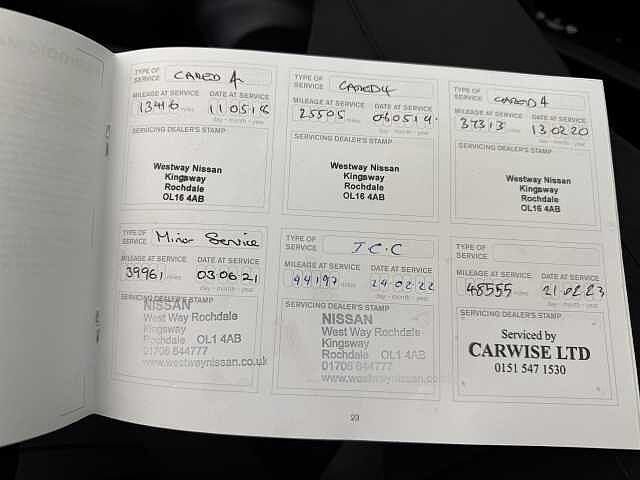 TYPE OF SERVICE CARED 4
MILEAGE AT SERVICE DATE AT SERVICE
13416 miles 11 05 18
day - month - year
SERVICING DEALER'S STAMP
Westway Nissan
Kingsway
Rochdale
OL16 4AB
TYPE OF SERVICE CARED 4
MILEAGE AT SERVICE DATE AT SERVICE
25505 miles 06 05 19
day - month - year
SERVICING DEALER'S STAMP
Westway Nissan
Kingsway
Rochdale
OL16 4AB
TYPE OF SERVICE CARED 4
MILEAGE AT SERVICE DATE AT SERVICE
37313 miles 13 02 20
day - month - year
SERVICING DEALER'S STAMP
Westway Nissan
Kingsway
Rochdale
OL16 4AB
TYPE OF SERVICE Minor Service
MILEAGE AT SERVICE DATE AT SERVICE
39961 miles 03 06 21
day - month - year
SERVICING DEALER'S STAMP
NISSAN
West Way Rochdale
Kingsway
Rochdale OL1 4AB
01706 644777
www.westwaynissan.co.uk
TYPE OF SERVICE J.C.C
MILEAGE AT SERVICE DATE AT SERVICE
44197 miles 24 02 22
day - month - year
SERVICING DEALER'S STAMP
NISSAN
West Way Rochdale
Kingsway
Rochdale OL1 4AB
01706 644777
www.westwaynissan.co
TYPE OF SERVICE
MILEAGE AT SERVICE DATE AT SERVICE
48555 miles 21 02 23
day - month - year
SERVICING DEALER'S STAMP
Serviced by
CARWISE LTD
0151 547 1530
23